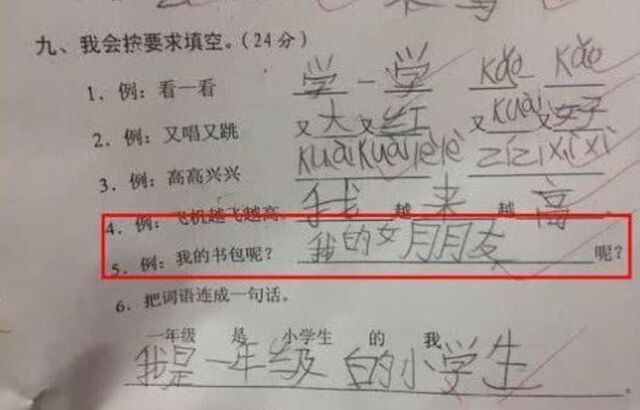 九、我会按要求填空。(24分)
1. 例：看一看 学一学 kàe kàe
2. 例：又唱又跳 又大又红 又kuài又好
3. 例：高高兴兴 kuàikuàilèlè zǐzǐxìxì
4. 例：飞机越飞越高。 我越来越高。
5. 例：我的书包呢？ 我的女月朋友呢？
6. 把词语连成一句话。
一年级 是 小学生 的 我
我是一年级白的小学生